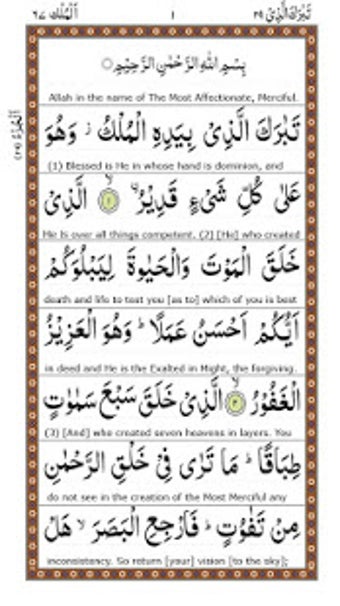 تَبٰرَكَ الَّذِیْ ٢٩ ١ اَلْمُلْك ٦٧
اَلْجُزْءُ (٢٩)
بِسْمِ اللّٰهِ الرَّحْمٰنِ الرَّحِیْمِ ○
Allah in the name of The Most Affectionate, Merciful.
تَبٰرَكَ الَّذِیْ بِیَدِهِ الْمُلْكُ ز وَهُوَ
(1) Blessed is He in whose hand is dominion, and
عَلٰی كُلِّ شَیْءٍ قَدِیْرُ ۙ ۝١ الَّذِیْ
He Is over all things competent. (2) [He] who created
خَلَقَ الْمَوْتَ وَالْحَیٰوةَ لِیَبْلُوَكُمْ
death and life to test you [as to] which of you is best
اَیُّكُمْ اَحْسَنُ عَمَلًا ؕ وَهُوَ الْعَزِیْزُ
in deed and He is the Exalted in Might, the forgiving.
الْغَفُوْرُ ۙ ۝٢ الَّذِیْ خَلَقَ سَبْعَ سَمٰوٰتٍ
(3) [And] who created seven heavens in layers. You
طِبَاقًا ؕ مَا تَرٰی فِیْ خَلْقِ الرَّحْمٰنِ
do not see in the creation of the Most Merciful any
مِنْ تَفٰوُتٍ ؕ فَارْجِعِ الْبَصَرَ ۙ هَلْ
inconsistency. So return [your] vision [to the sky];